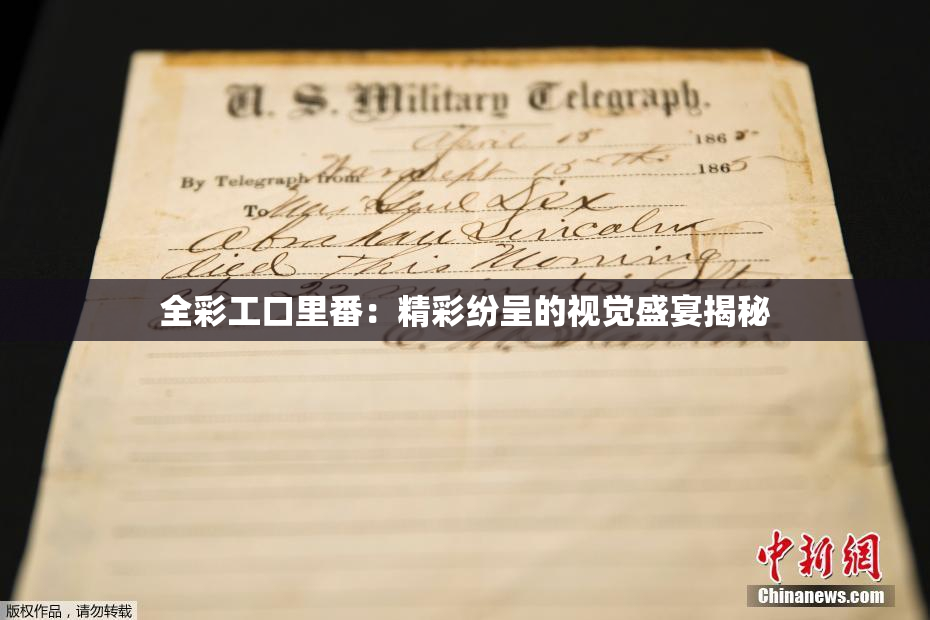 U. S. Military Telegraph.
April 15 1865
By Telegraph from War Dept 15th 1865
To Maj Genl Dix
Abraham Lincoln
died This Morning
at 22 minutes after
全彩工口里番：精彩纷呈的视觉盛宴揭秘
E. M. Stanton
中新網
Chinanews.com
版权作品，请勿转载